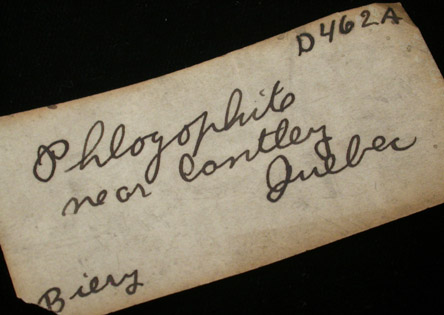 D462A
Phlogophite
near Cantley
Quebec
Biery